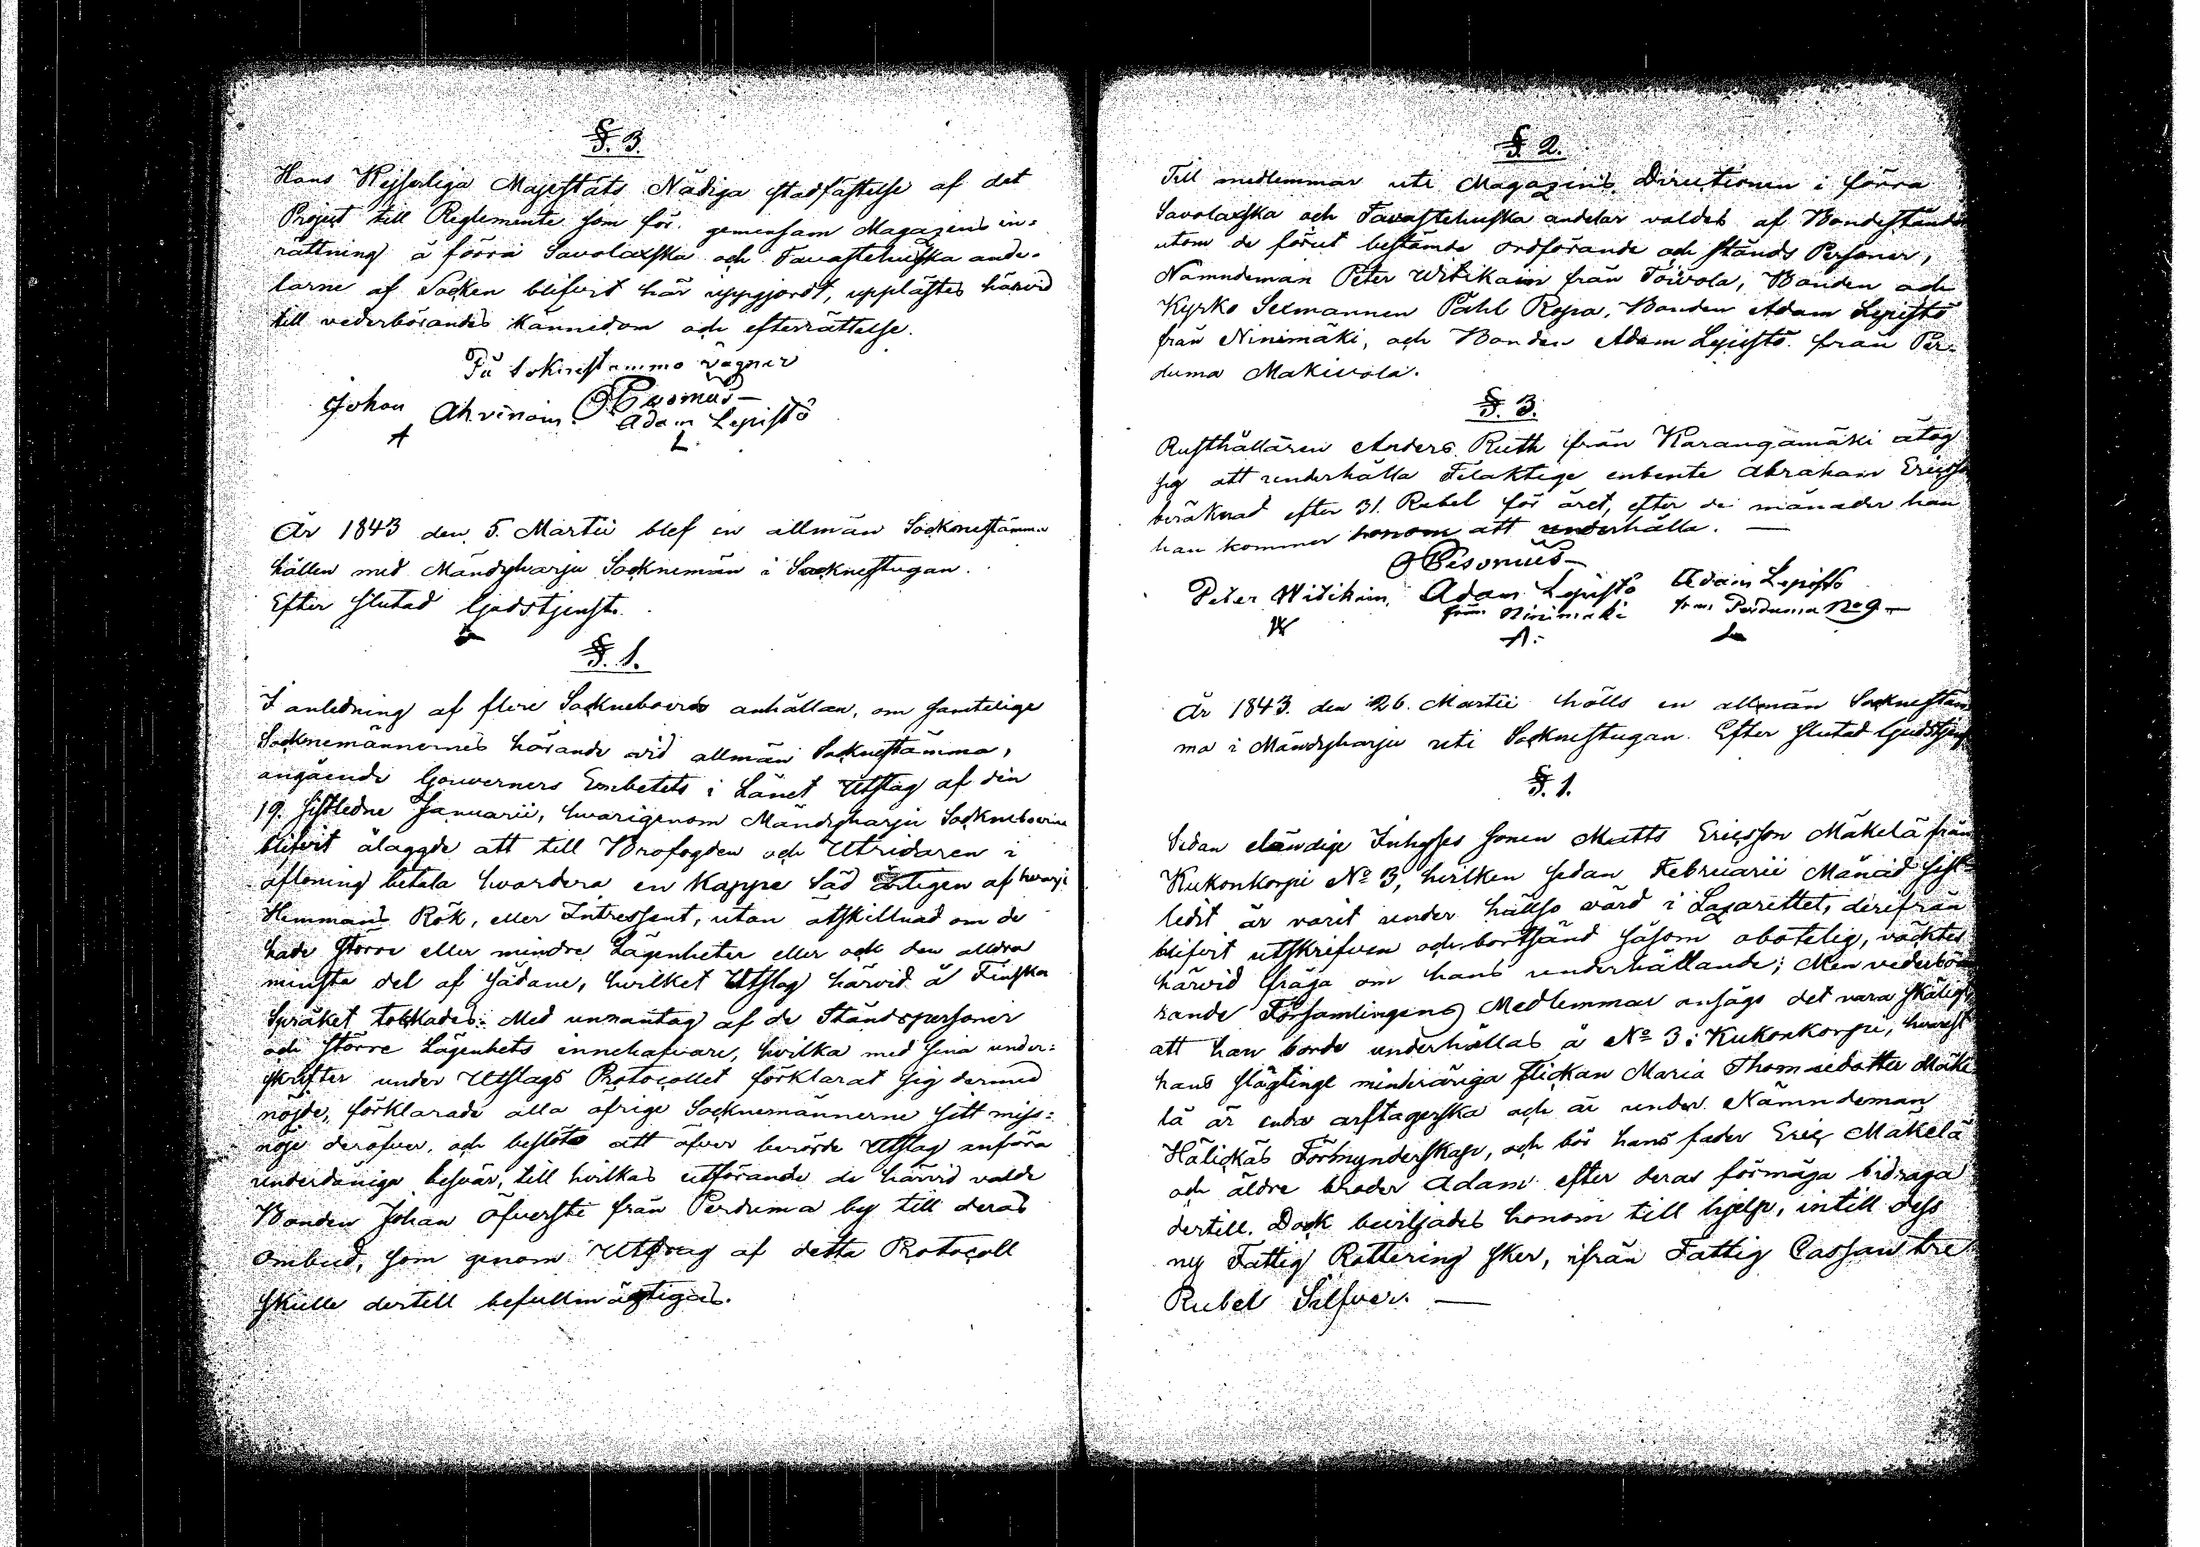 §. 3.
Hans Kejserliga Majestäts Nådiga stadfästelse af det
Project till Reglemente som för gemensam Magazins in=
rättning å förra Savolaxska och Tavastehuska ande-
larne af Socken blifvit här uppgjordt, upplästes härvid
till vederbörandes kännedom och efterrättelse.
På Soknestammo vägnar
Johan Ahvinain Pesonius
Adam Lepistö
A L
År 1843 den 5. Martii blef en allmän Socknestämma
hållen med Mändyharju Socknemän i Socknestugan.
Efter slutad Gudstjenst.
§. 1.
I anledning af flere Sockneboers anhållan, om samtelige
Socknemännernes hörande vid allmän Socknestämma,
angående Gouverners Embetets i Länet Utslag af den
19. sistledne Januarii, hvarigenom Mändyharju Socknboerne
blifvit ålaggde att till Brofogden och Utridaren i
aflöning betala hvardera en Kappe Säd årligen af hvarje
Hemmans Rök, eller Intressent, utan åtskillnad om de
hade större eller mindre Lägenheter eller och den alldra
minsta del af sådane, hvilket Utslag härvid å Finska
Språket tolkades: Med undantag af de Ståndspersoner
och större Lägenhets innehafvare, hvilka med sina under=
skrifter under Utslags Protocollet förklarat sig dermed
nöjde, förklarade alla öfrige Socknemännerne sitt miss=
nöje deröfver, och beslöto att öfver berörde Utslag anföra
underdåniga besvär, till hvilkas utförande de härvid valde
Bonden Johan Öfversti från Perduma by till deras
Ombud, som genom Utdrag af detta Protocoll
skulle dertill befullmägtigas.
§. 2.
Till medlemmar uti Magazins Directionen i förra
Savolaxska och Tavastehuska andelar valdes af Bondestånde
utom de förut bestämde ordförande och Stånds Personer,
Nämndeman Peter Witikain från Toivola, Bonden och
Kyrko Sexmannen Påhl Ropa, Bonden Adam Lepistö
från Ninimäki, och Bonden Adam Lepistö från Per-
duma Makivola.
§. 3.
Rusthållaren Anders Ruth från Karangamäki åtog
sig att underhålla Felaktige enbente Abraham Ericss
beräknad efter 31. Rubel för året, efter de månader han
han kommer honom att underhålla. —
Pesonius
Peter Witikain, Adam Lepistö Adam Lepistö
från Ninimaki från Perduma No 9 —
W A: L
År 1843. den 26. Martii hölls en allmän Socknestäm
ma i Mändyharju uti Socknestugan. Efter slutad Gudstjenst
§. 1.
Sedan eländige Inhyses sonen Matts Ericsson Mäkelä från
Kukonkorpi No 3, hvilken sedan Februarii Månad sist=
ledit år varit under hällso vård i Lazarettet, derifrån
blifvit utskrifven och bortsänd såsom obotelig, väcktes
härvid fråga om hans underhållande; Men vederbö
rande Församlingens Medlemmar ansågs det vara skäligt,
att han borde underhållas å No 3 i Kukonkorpi, hvarest
hans slägtinge minderåriga flickan Maria Thomædotter Mäke
lä är enda arftagerska och är under Nämndeman
Hälickäs Förmynderskap, och bör hans fader Eric Mäkelä
och äldre broder Adam efter deras förmåga bidraga
dertill. Dock beviljades honom till hjelp, intill dess
ny Fattig Rottering sker, ifrån Fattig Cassan tre
Rubel Silfver. —